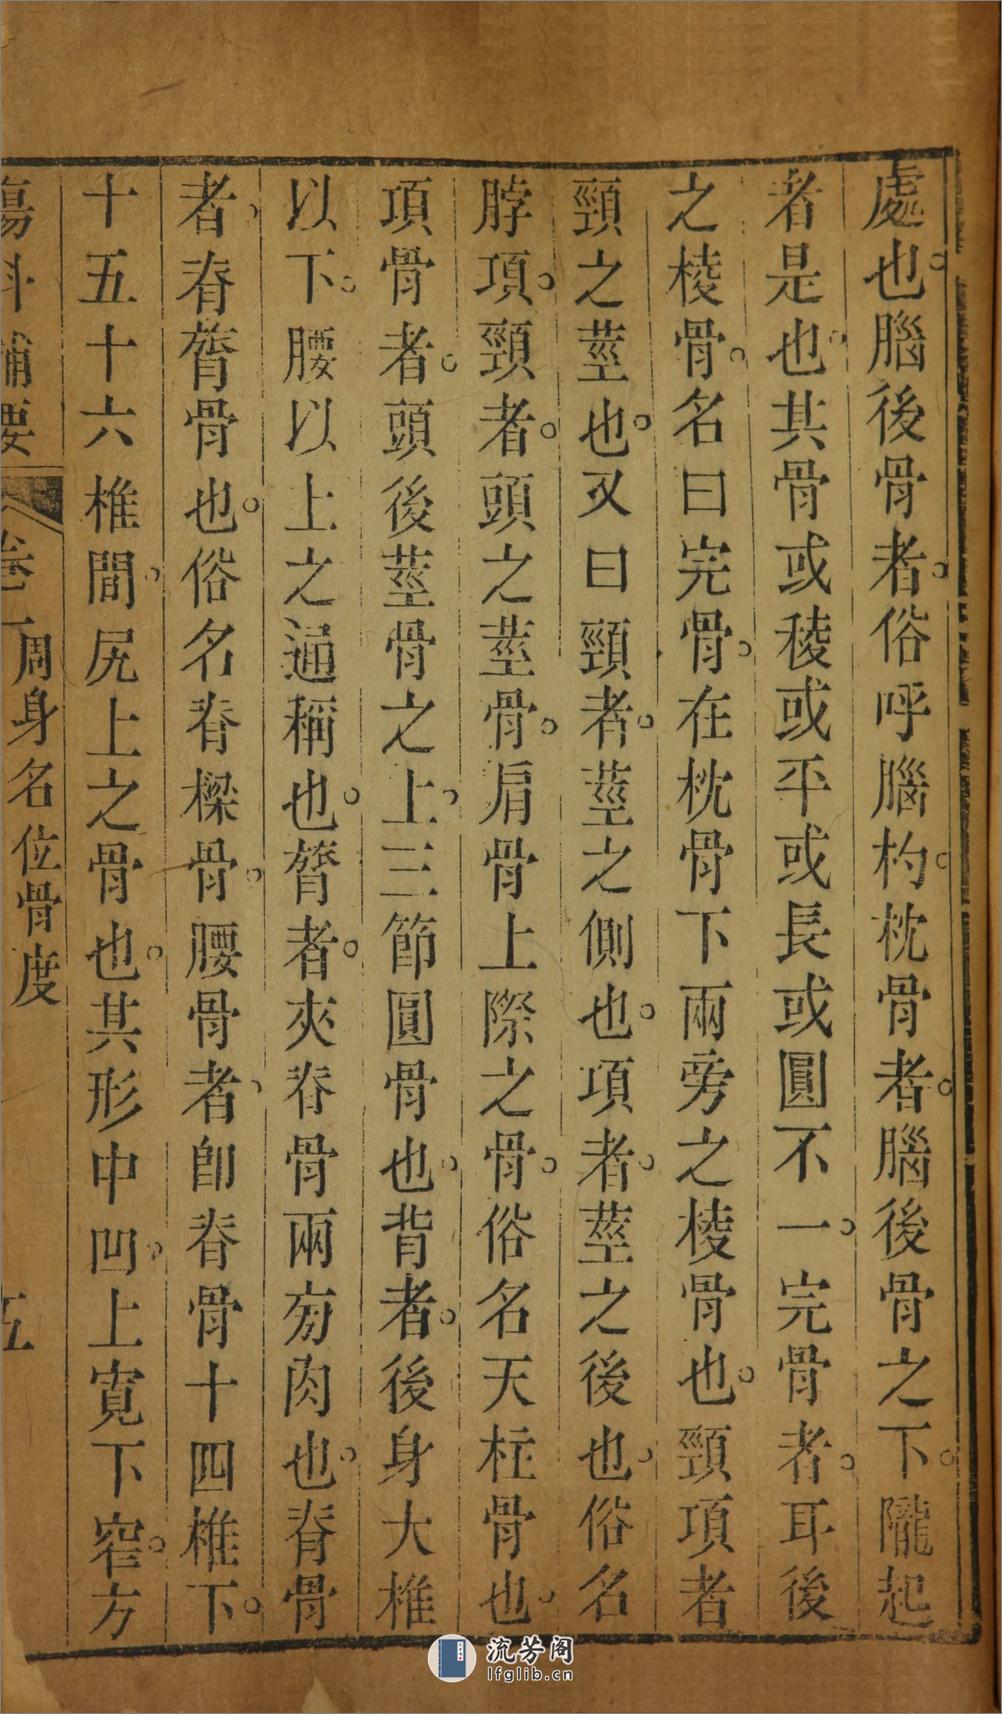 處也腦後骨者俗呼腦杓枕骨者腦後骨之下隴起
者是也其骨或稜或平或長或圓不一完骨者耳後
之棱骨名曰完骨在枕骨下兩旁之棱骨也頸項者
頸之莖也又曰頸者莖之側也項者莖之後也俗名
脖項頸者頭之莖骨肩骨上際之骨俗名天柱骨也
項骨者頭後莖骨之上三節圓骨也背者後身大椎
以下腰以上之通稱也膂者夾脊骨兩旁肉也脊骨
者脊膂骨也俗名脊樑骨腰骨者即脊骨十四椎下
十五十六椎間尻上之骨也其形中凹上寬下窄方
傷科補要 卷一 周身名位骨度 五
流芳阁
lfglib.cn